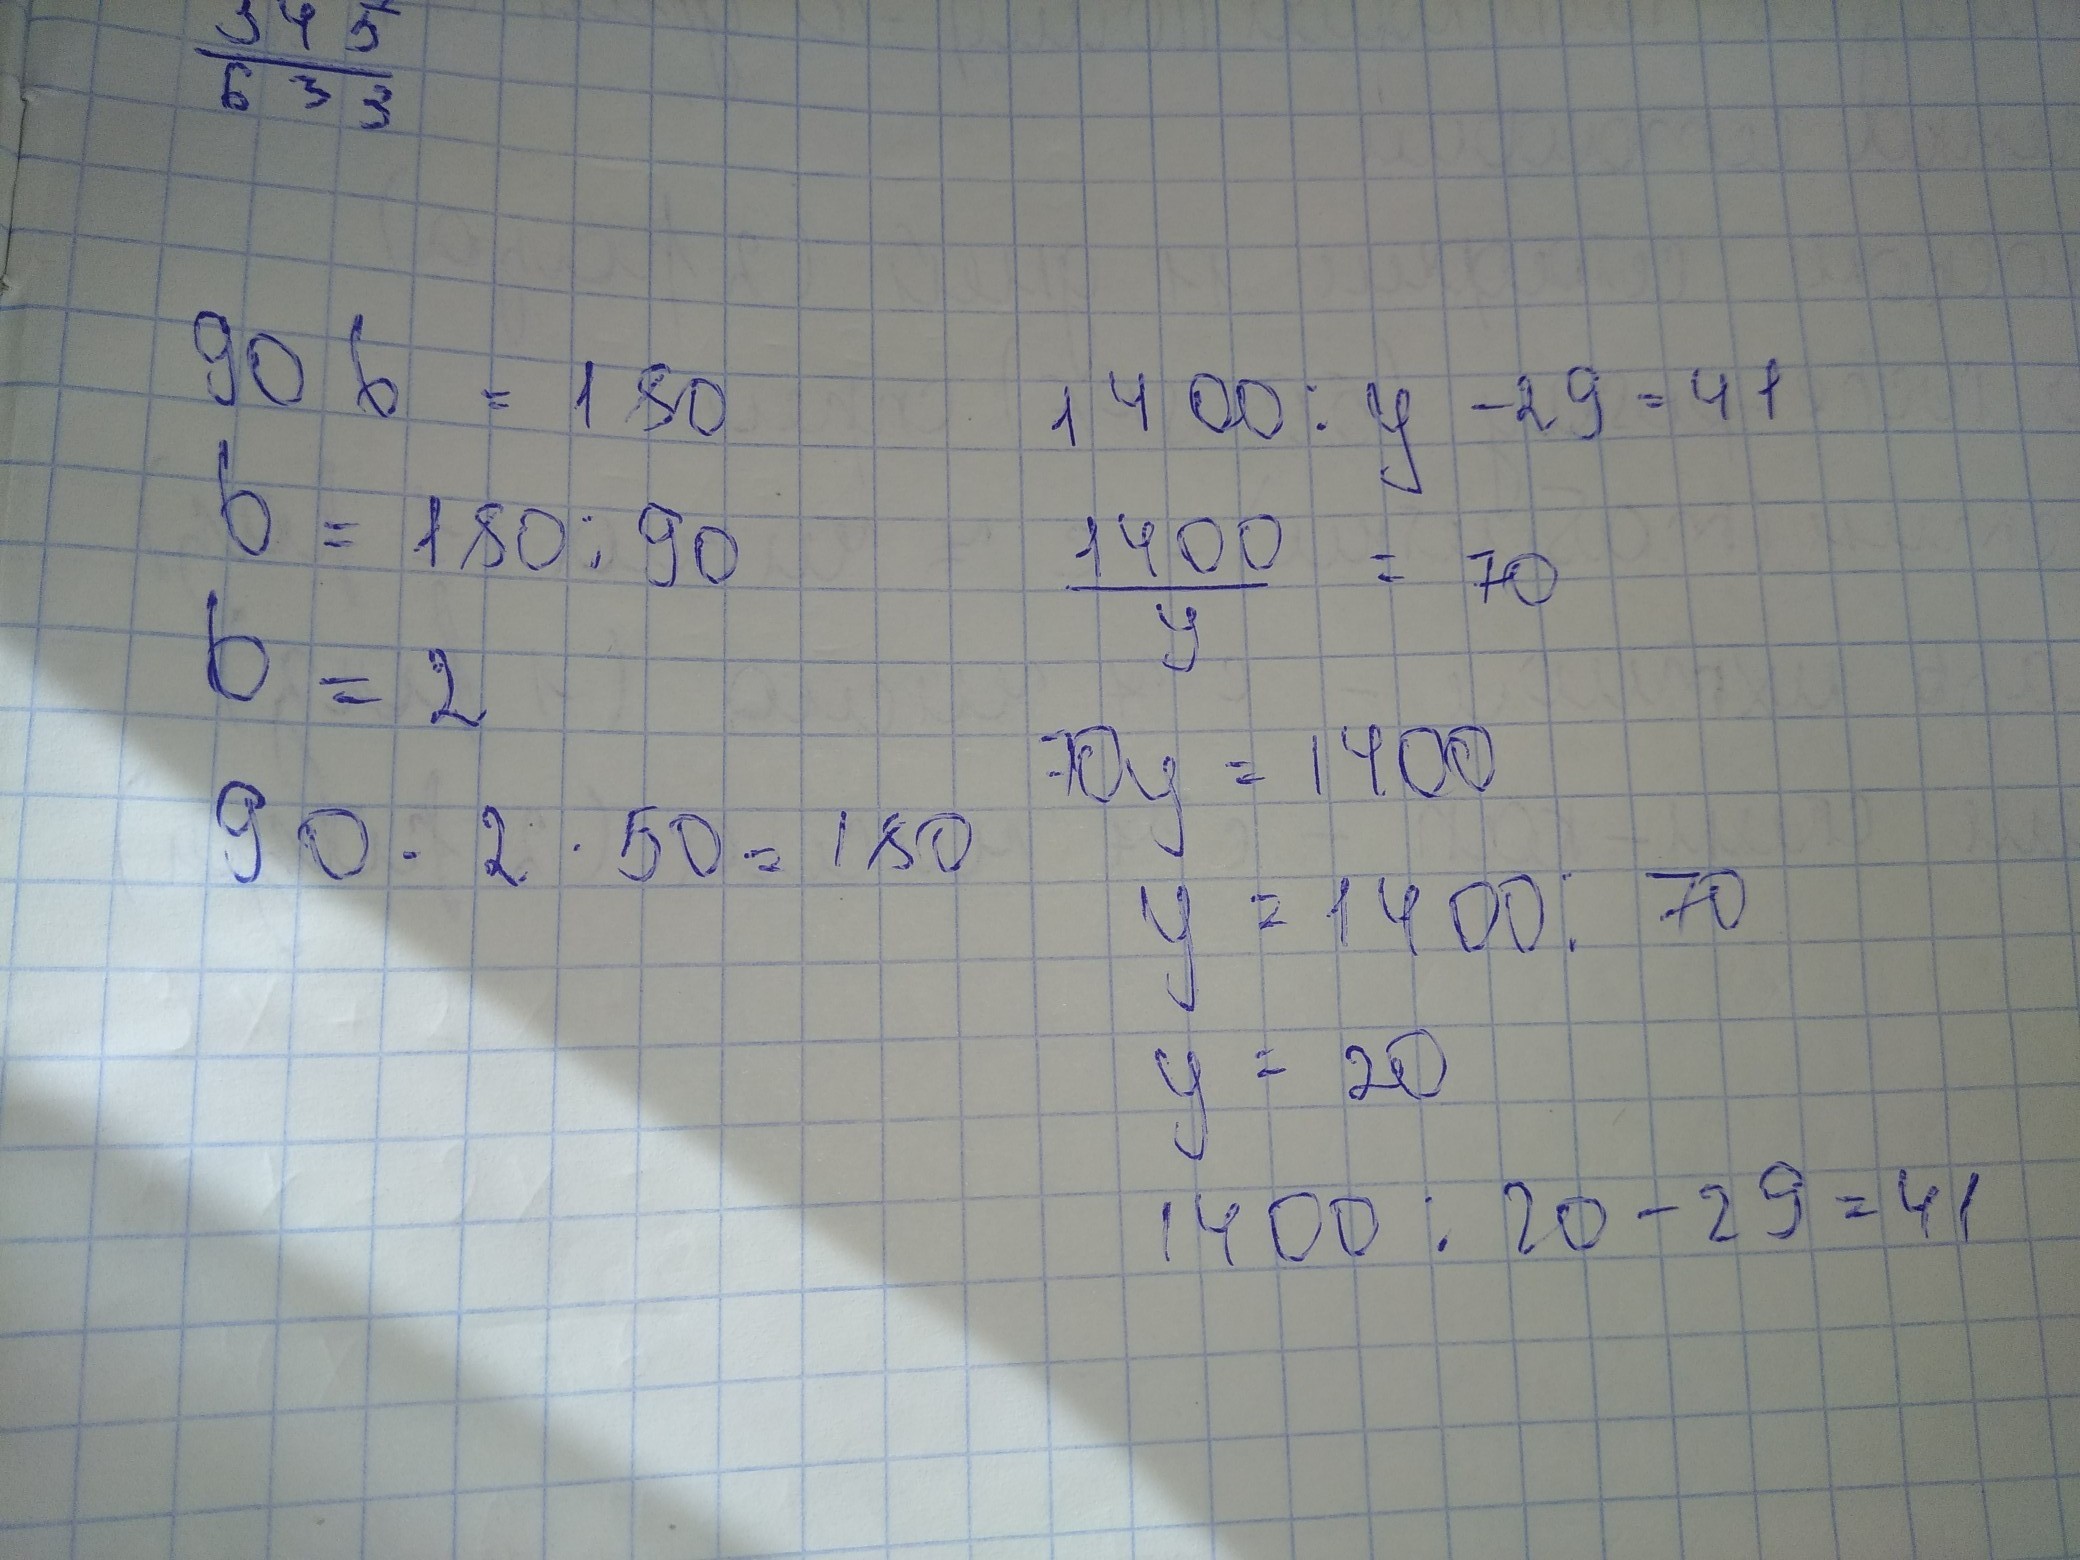 345
633
90 b = 180
b = 180 : 90
b = 2
90 · 2 · 50 = 180
1400 : y - 29 = 41
1400
y
= 70
70y = 1400
y = 1400 : 70
y = 20
1400 : 20 - 29 = 41